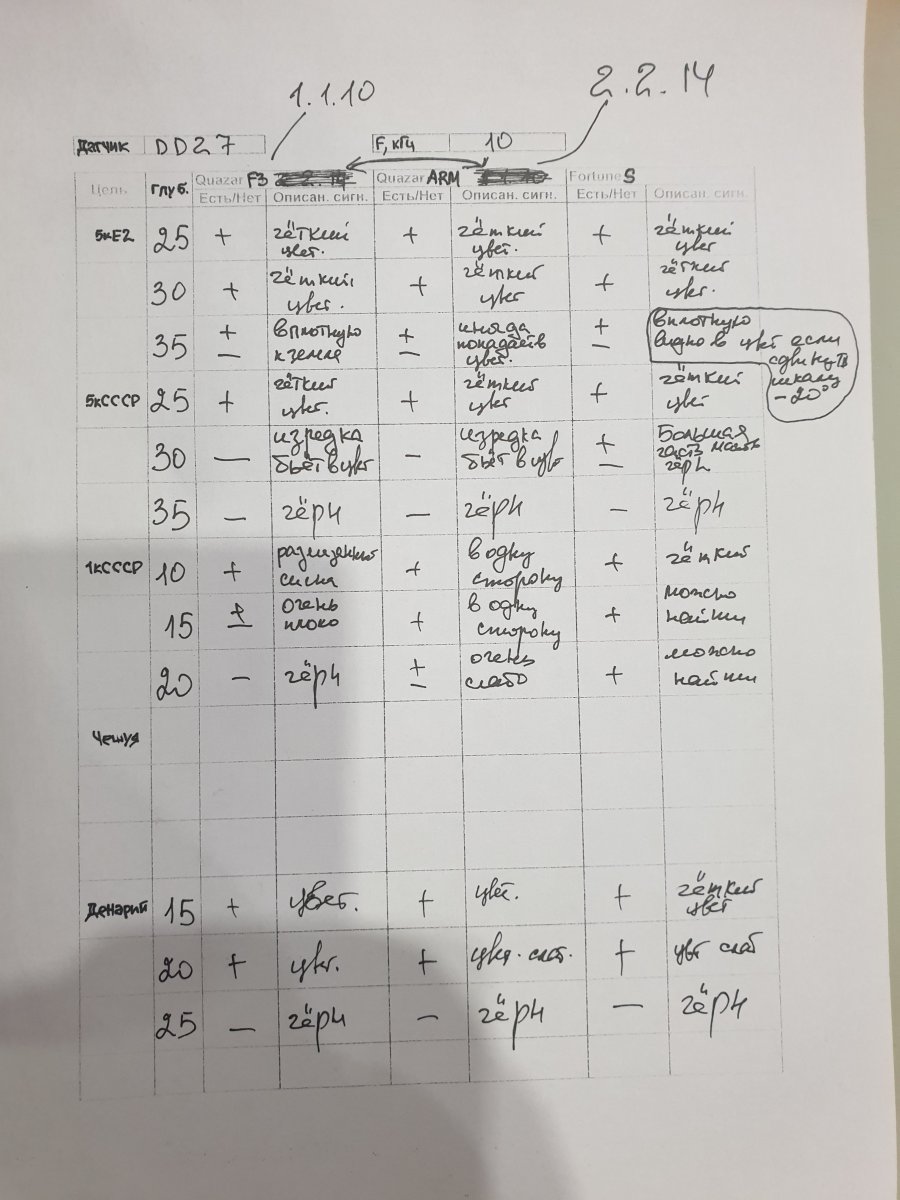 1.1.10
2.2.14
Датчик DD27 F, кГц 10
Цель. Глуб. Quazar F3 Quazar ARM Fortune S
Есть/Нет Описан. сигн. Есть/Нет Описан. сигн. Есть/Нет Описан. сигн.
5кЕ2 25 + чёткий цвет. + чёткий цвет. + чёткий цвет
30 + чёткий цвет. + чёткий цвет + чёткий цвет.
35 ± вплотную к земле ± иногда попадает в цвет. ± вплотную видно в цвет если сдвинуть шкалу -20°
5кСССР 25 + чёткий цвет. + чёткий цвет + чёткий цвет
30 — изредка бьёт в цвет — изредка бьёт в цвет ± Большая часть черн.
35 — чёрн — чёрн — чёрн
1кСССР 10 + + в одну сторону + чёткий
15 ± очень плохо + в одну сторону + можно найти
20 — чёрн ± очень слабо + можно найти
Чешуя
Денарий 15 + цвет. + цвет. + чёткий цвет
20 + цвет. + цвет. слаб. + цвт слаб
25 — чёрн — чёрн — чёрн